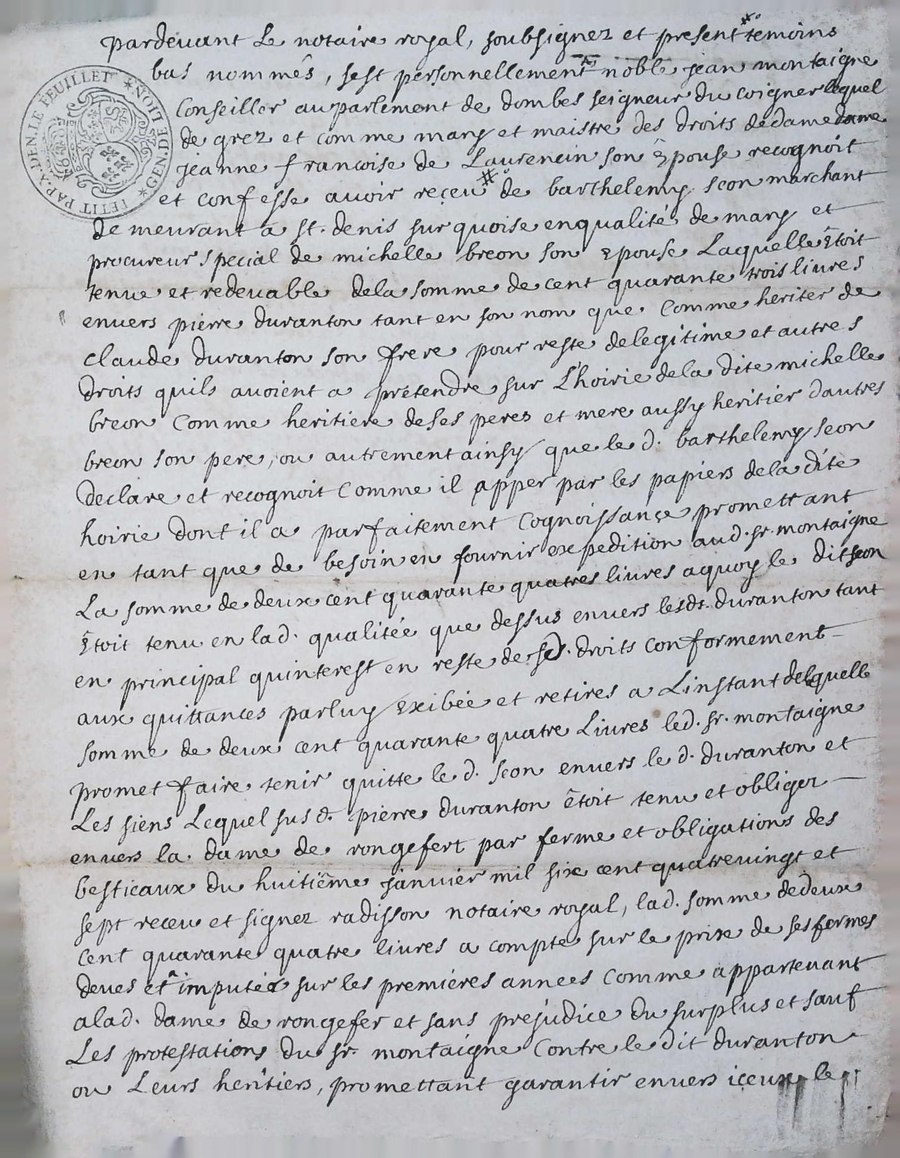 PETIT PAP. A. 2 DEN. LE FEUILLET * GEN. DE LION *
pardevant Le notaire royal, soubsignez et present temoins
bas nommés, sest personnellement noble jean montaigne
Conseiller au parlement de dombes seigneur du Coigner lequel
de grez et comme mary et maistre des droits dedame dame
jeanne francoise de Laurencin son Epouse recognoit
et confesse avoir reçeu de barthelemy seon marchant
de meurant a st. denis sur quoise enqualité de mary et
procureur special de michelle breon son Epouse Laquelle Etoit
tenue et redevable dela somme de cent quarante trois livres
envers pierre duranton tant en son nom que Comme heriter de
Claude duranton son frere pour reste delegitime et autres
droits quils avoient a pretendre sur L'hoirie dela dite michelle
breon Comme heritiere deses peres et mere aussy heritier dautres
breon son pere, ou autrement ainsy que le d. barthelemy seon
declare et recognoit Comme il apper par les papiers dela dite
hoirie dont il a parfaitement Cognoissançe promettant
en tant que de besoin en fournir expedition aud. sr. montaigne
La somme de deux cent quarante quatres livres aquoy le dit seon
Etoit tenu en lad. qualitée que dessus envers lesdt. duranton tant
en principal quinterest en reste de sd. droits conformement
aux quittances parluy Exibée et retires a Linstant delquelle
somme de deux cent quarante quatre Livres led. sr. montaigne
promet faire tenir quitte le d. seon envers le d. duranton et
Les siens Lequel susd. pierre duranton êtoit tenu et obliger
envers la dame de rongefert par ferme et obligations des
besticaux du huitième janvier mil six cent quatrevingt et
sept receu et signez radisson notaire royal, lad. somme dedeux
cent quarante quatre livres a compte sur le prix de ses fermes
deues et imputées sur les premières années comme appartenant
alad. dame de rongefer et sans préjudice du surplus et sauf
Les protestations du sr. montaigne Contre le dit duranton
ou Leurs heritiers, promettant garantir envers içeux le